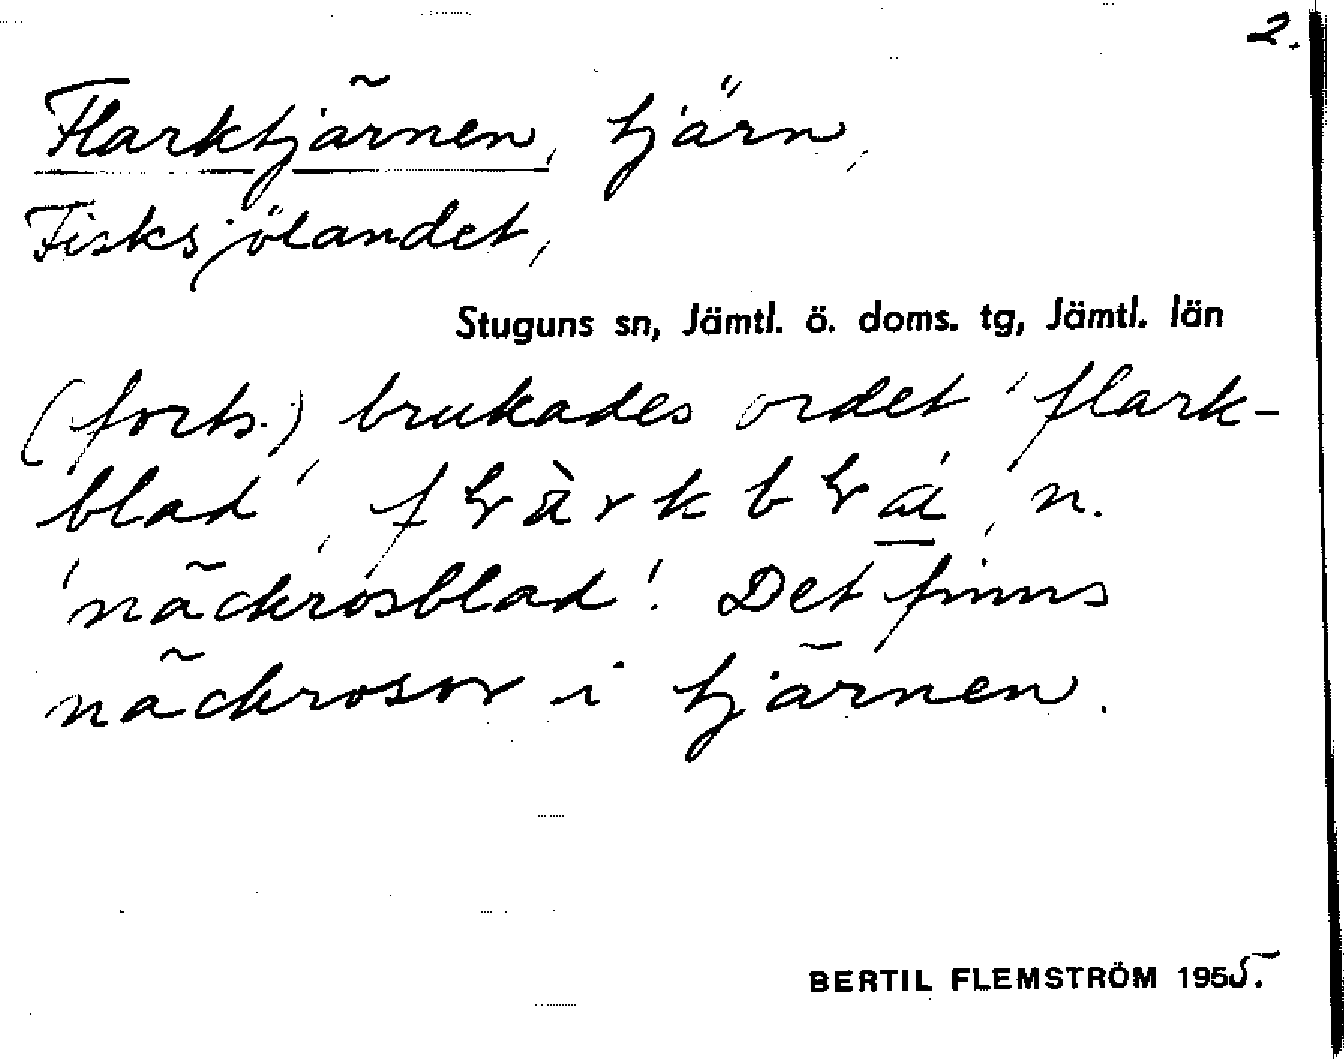 2.
Flarktjärnen, tjärn,
Fisksjölandet,
Stuguns sn, Jämtl. ö. doms. tg, Jämtl. län
(forts.) brukades ordet 'flark-
blad', n.
'näckrosblad'. Det finns
näckrosor i tjärnen.
BERTIL FLEMSTRÖM 1955.